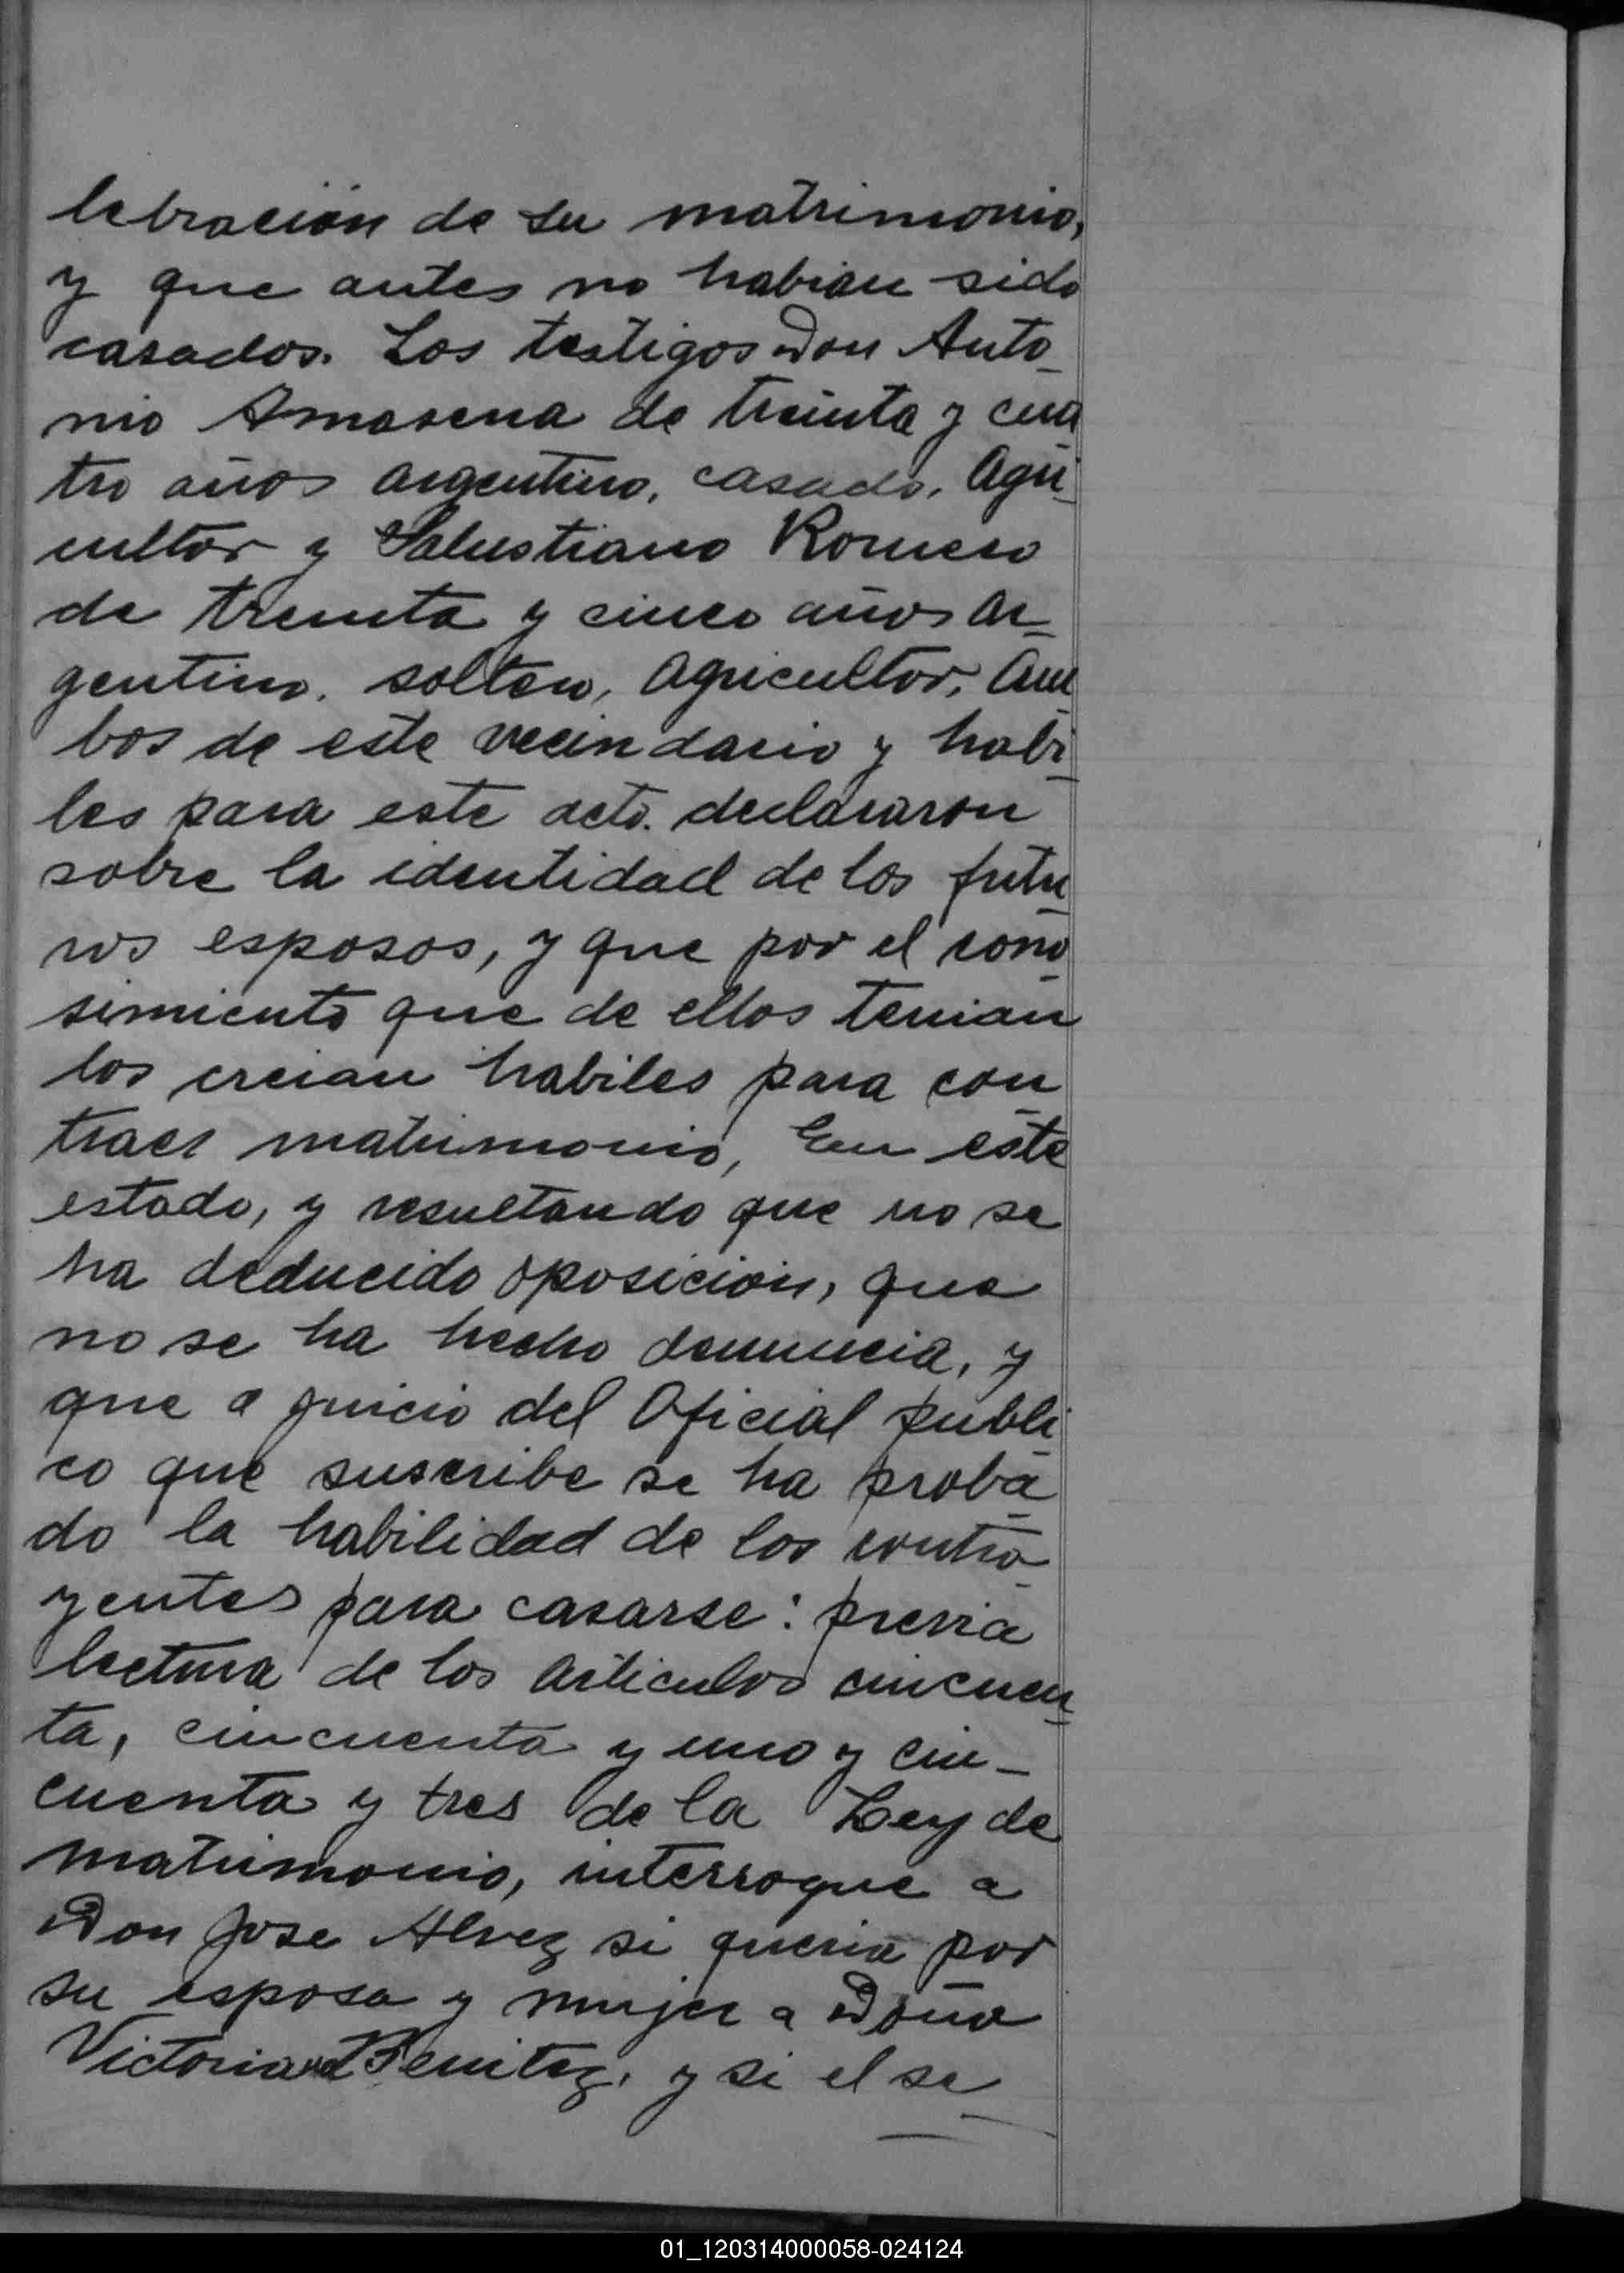 lebración de su matrimonio,
y que antes no habian sido
casados. Los testigos Don Anto_
nio Amarena de treinta y cua
tro años argentino, casado, Agri_
cultor y Salustiano Romero
de treinta y cinco años Ar_
gentino, soltero, Agricultor, Am_
bos de este vecindario y habi_
les para este acto. declararon
sobre la identidad de los futu_
ros esposos, y que por el cono_
simiento que de ellos tenian
los creian habiles para con_
traer matrimonio, En este
estado, y resultando que no se
ha deducido oposición, que
no se ha hecho denuncia, y
que a juicio del Oficial publi_
co que suscribe se ha proba_
do la habilidad de los contra_
yentes para casarse: previa
lectura de los articulos cincuen_
ta, cincuenta y uno y cin_
cuenta y tres de la Ley de
matrimonio, interrogue a
Don Jose Alvez si queria por
su esposa y mujer a Doña
Victoria Benitez, y si el se_
01_120314000058-024124